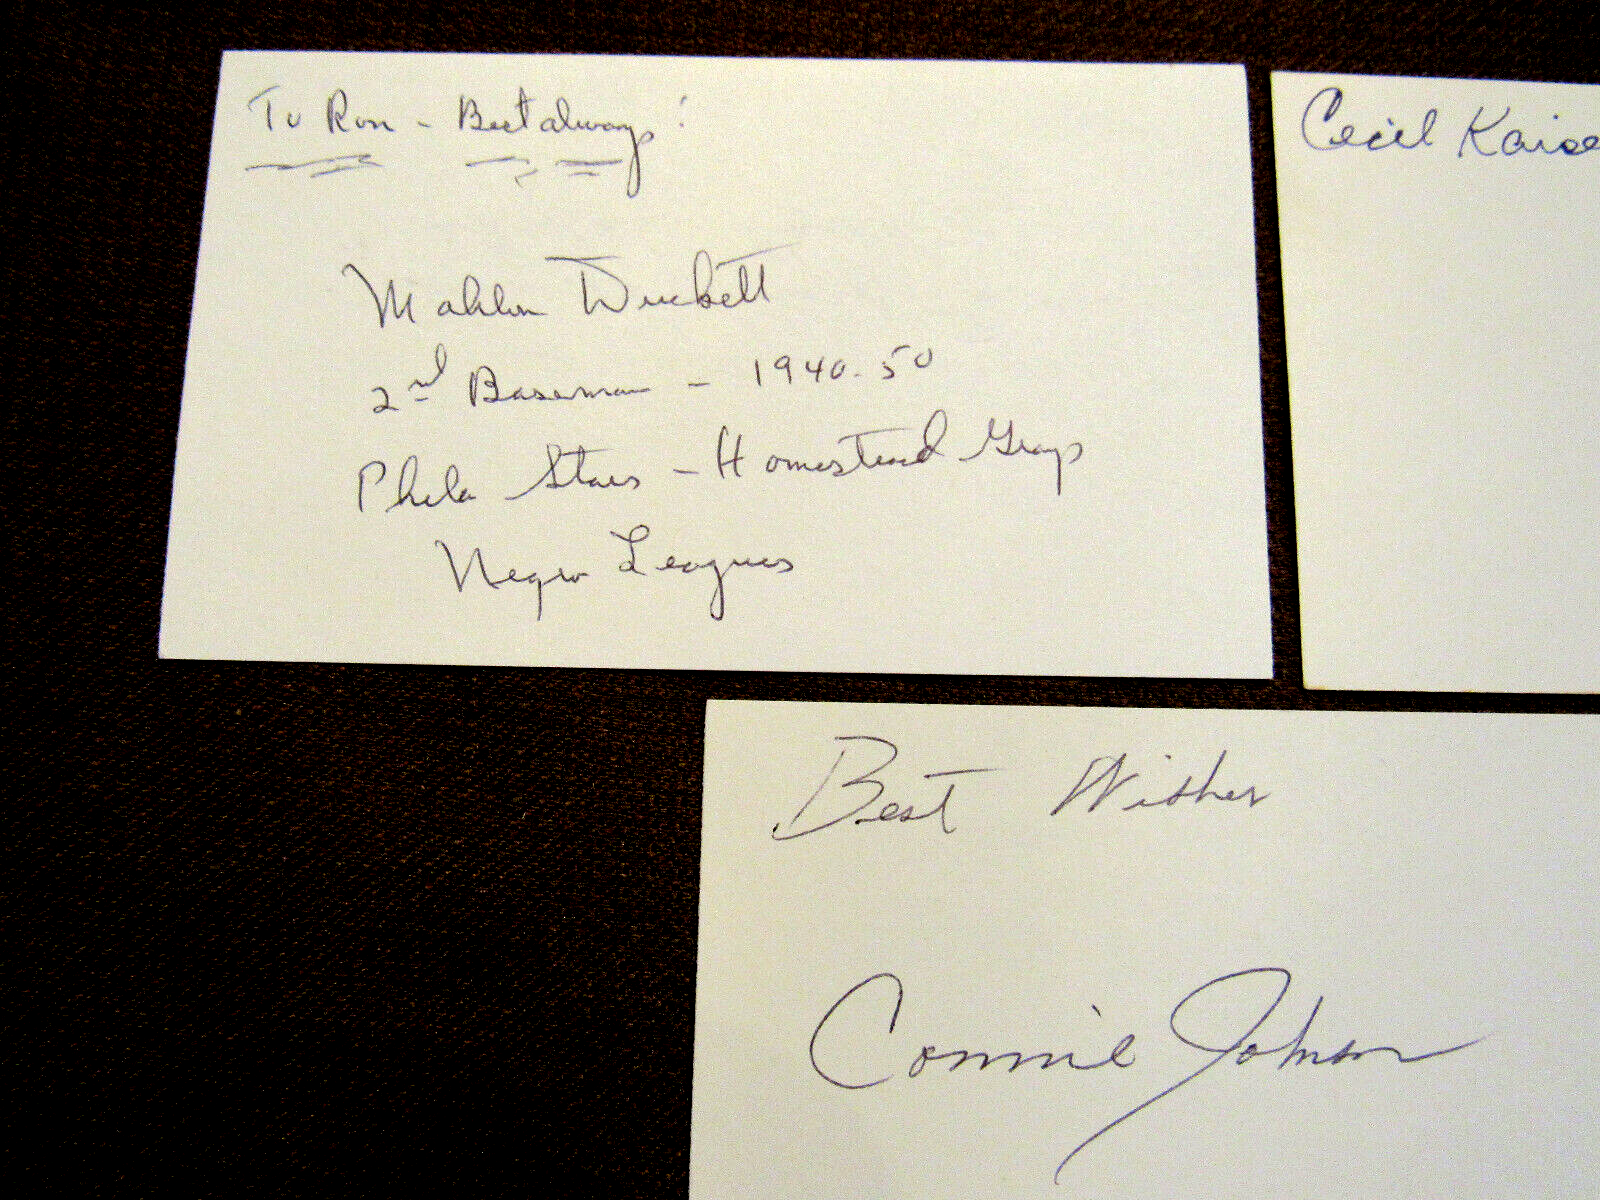 To Ron - Best always!
Mahlon Duckett
2nd Baseman - 1940-50
Phila Stars - Homestead Grays
Negro Leagues
Cecil Kaise
Best Wishes
Connie Johnson